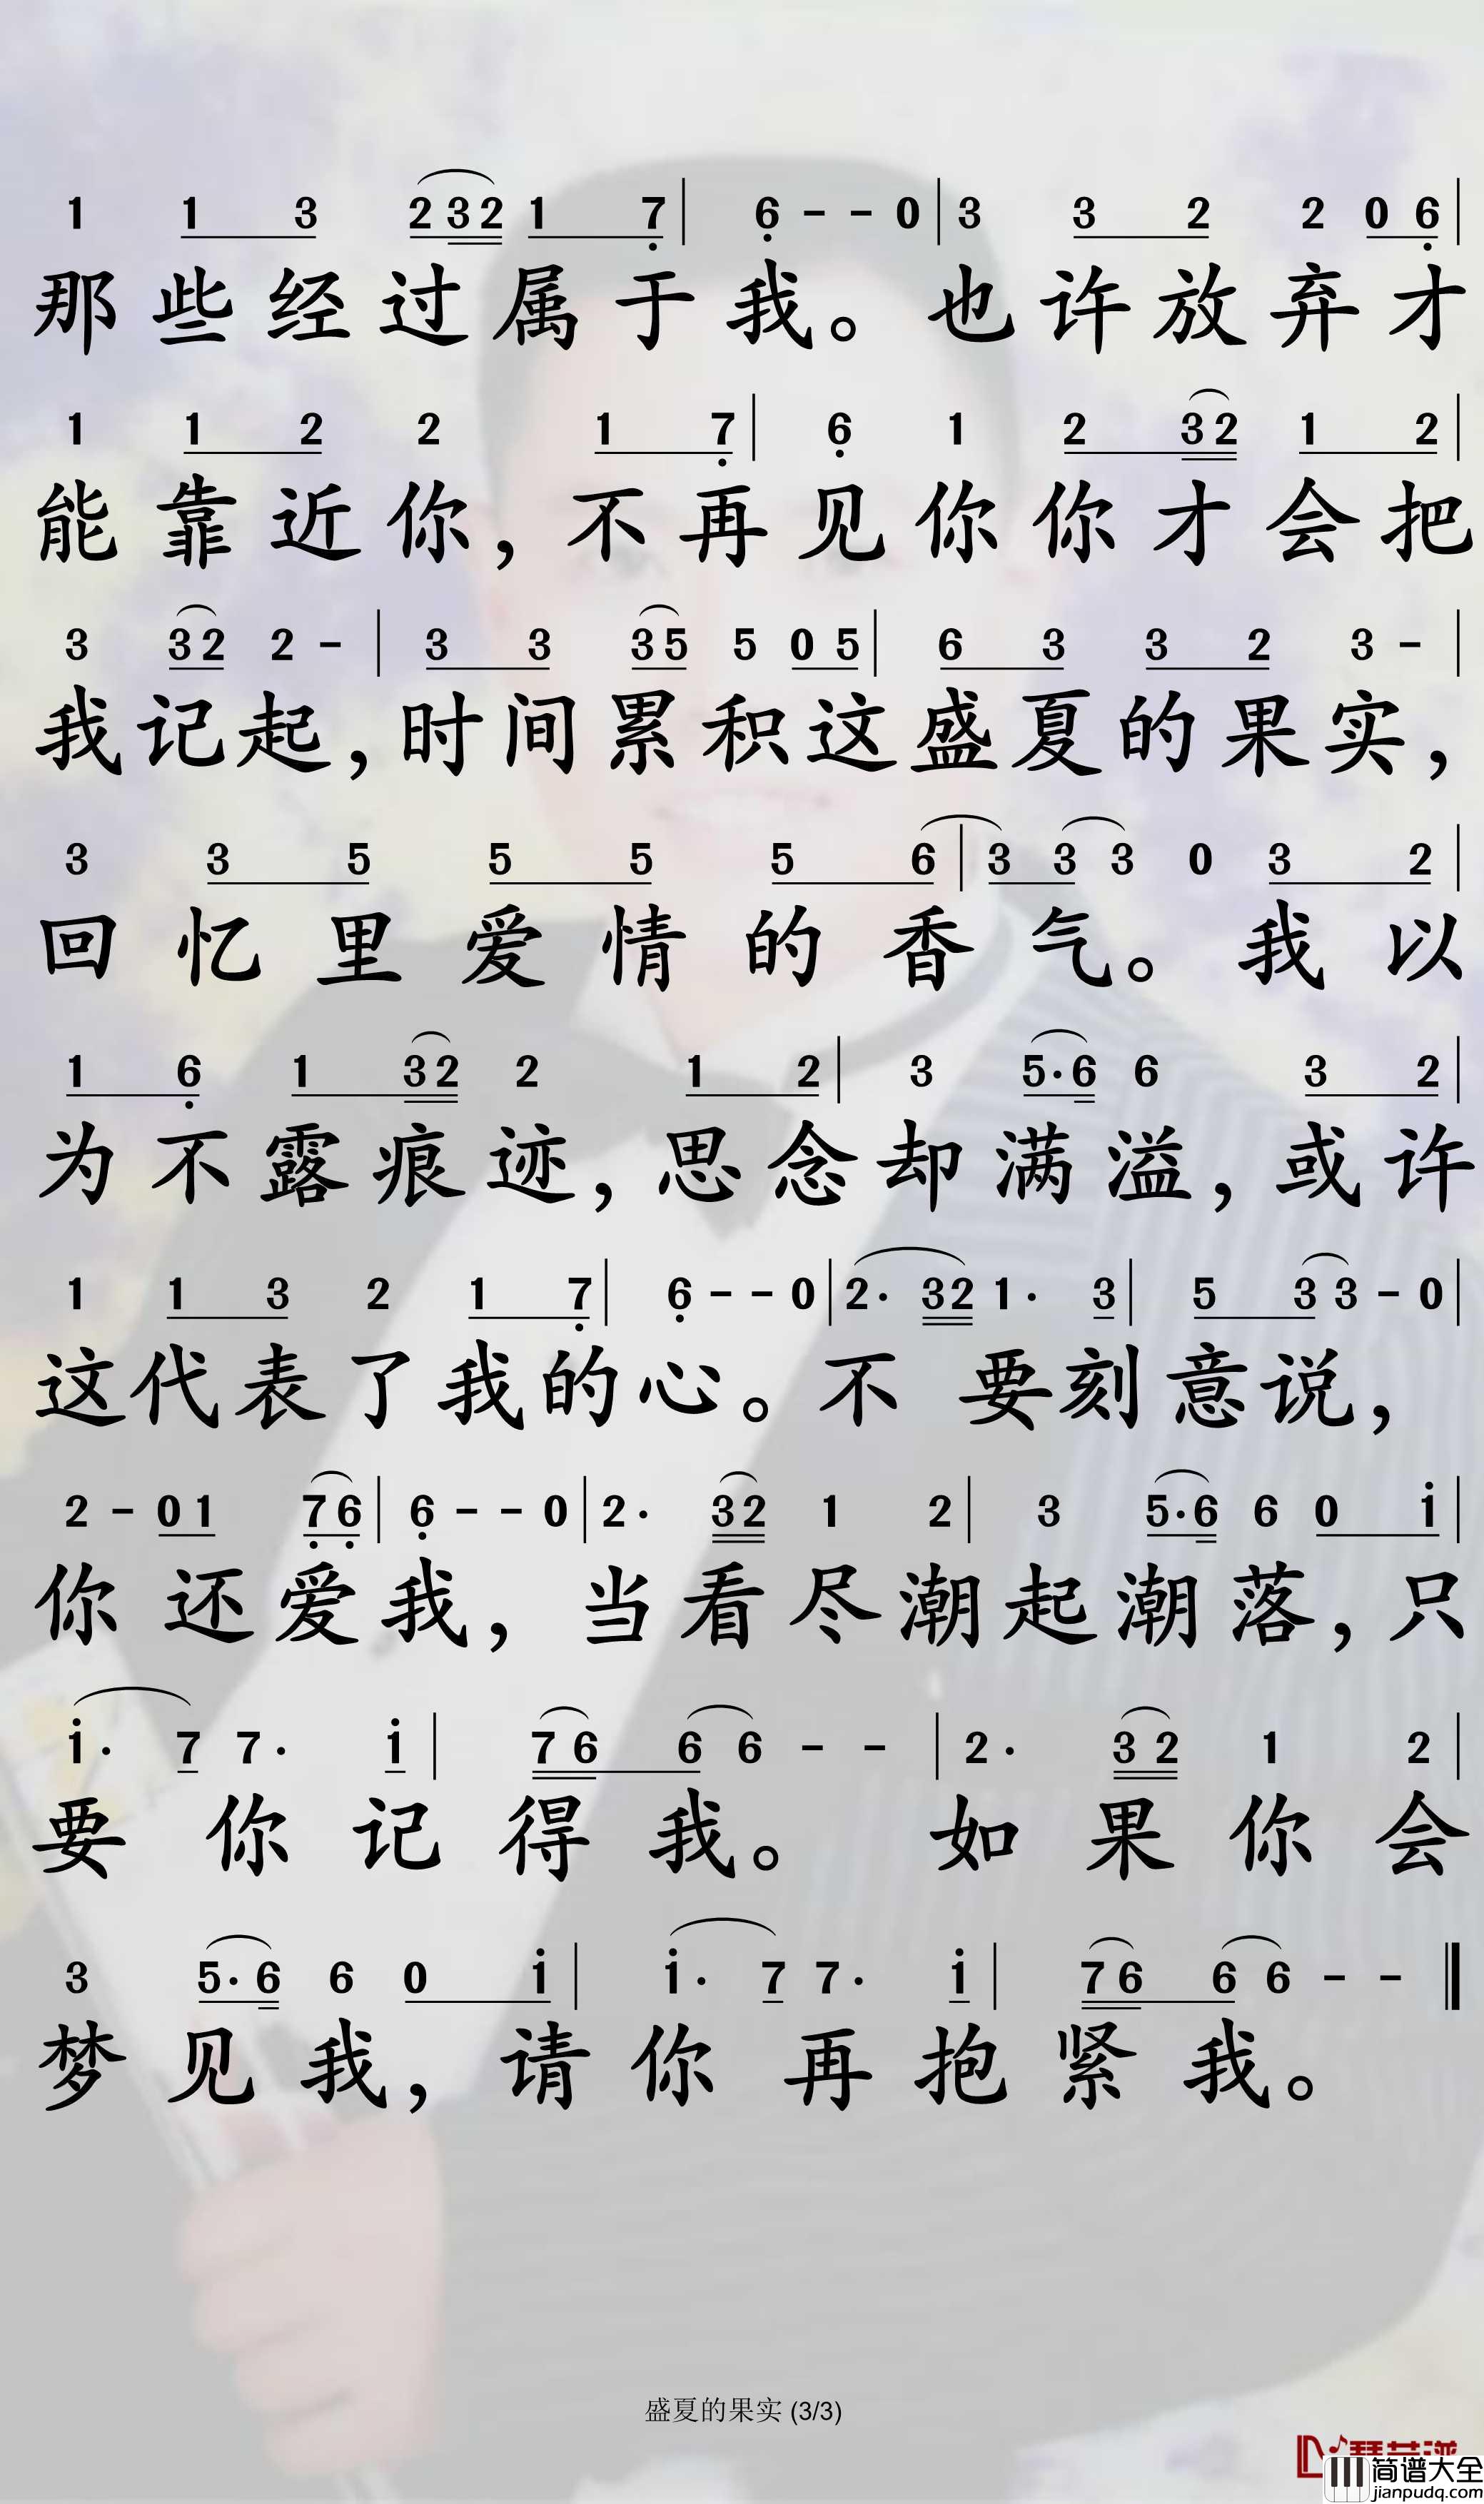 1 1 3 2 3 2 1 7 | 6 - - 0 | 3 3 2 2 0 6 |
那些经过属于我。也许放弃才
1 1 2 2 1 7 | 6 1 2 3 2 1 2 |
能靠近你，不再见你你才会把
3 3 2 2 - | 3 3 3 5 5 0 5 | 6 3 3 2 3 - |
我记起，时间累积这盛夏的果实，
3 3 5 5 5 5 6 | 3 3 3 0 3 2 |
回忆里爱情的香气。我以
1 6 1 3 2 2 1 2 | 3 5· 6 6 3 2 |
为不露痕迹，思念却满溢，或许
1 1 3 2 1 7 | 6 - - 0 | 2· 3 2 1· 3 | 5 3 3 - 0 |
这代表了我的心。不要刻意说，
2 - 0 1 7 6 | 6 - - 0 | 2· 3 2 1 2 | 3 5· 6 6 0 i |
你还爱我，当看尽潮起潮落，只
i· 7 7· i | 7 6 6 6 - - | 2· 3 2 1 2 |
要你记得我。如果你会
3 5· 6 6 0 i | i· 7 7· i | 7 6 6 6 - - ‖
梦见我，请你再抱紧我。
盛夏的果实 (3/3)
简谱大全
jianpudq.com